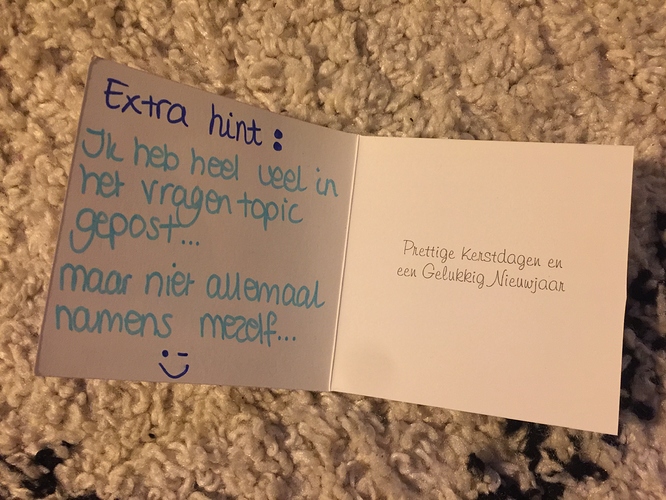 Extra hint:
Ik heb heel veel in
het vragen topic
gepost...
maar niet allemaal
namens mezelf...
Prettige Kerstdagen en
een Gelukkig Nieuwjaar